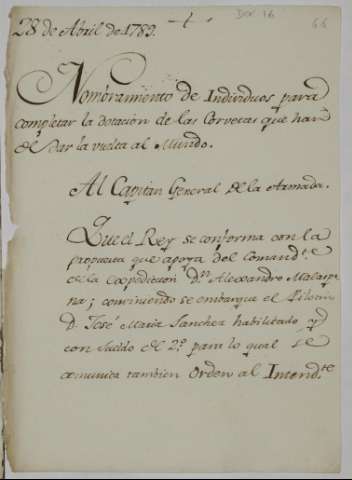 28 de Abril de 1789.
Nombramiento de Individuos para
completar la dotación de las Corvetas que han
de dar la vuelta al Mundo.
Al Capitan General de la Armada.
Que el Rey se conforma con la
propuesta que apoya del Comand.te
de la Expedicion Dn. Alexandro Malaspi
na; conviniendo se embarque el Pilotin
D. José Maria Sanchez habilitado
con sueldo de 2º para lo qual se
comunica tambien Orden al Intend.te